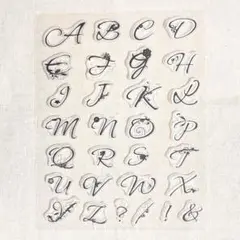 A B C D
E F G H
I J K L
M N O P
Q R S T
U V W X
Y Z ? ! &